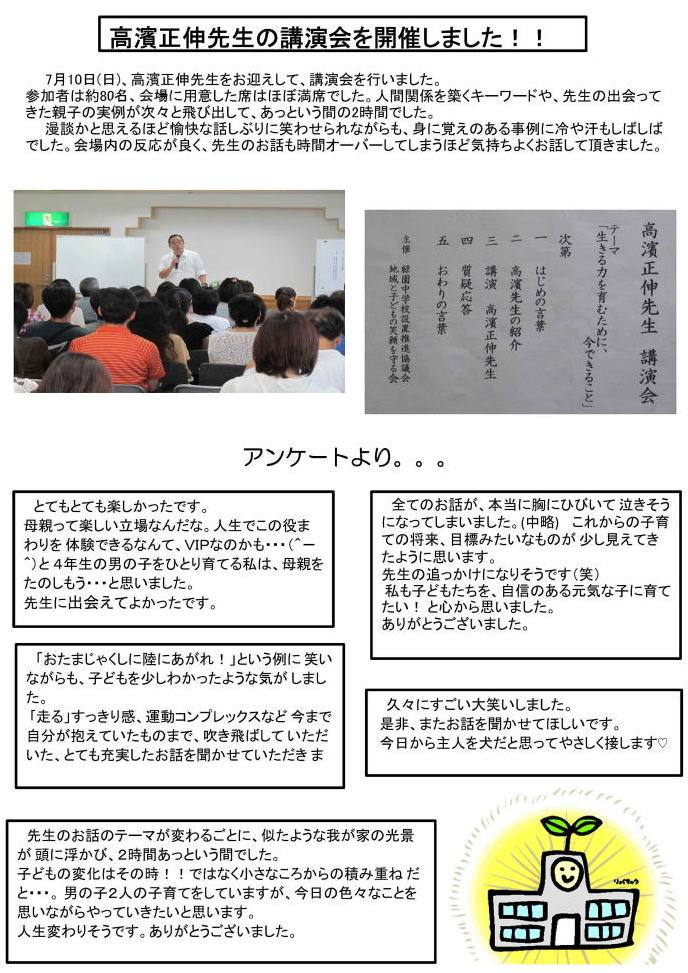 高濱正伸先生の講演会を開催しました！！
7月10日(日)、高濱正伸先生をお迎えして、講演会を行いました。
参加者は約80名、会場に用意した席はほぼ満席でした。人間関係を築くキーワードや、先生の出会って
きた親子の実例が次々と飛び出して、あっという間の2時間でした。
漫談かと思えるほど愉快な話しぶりに笑わせられながらも、身に覚えのある事例に冷や汗もしばしば
でした。会場内の反応が良く、先生のお話も時間オーバーしてしまうほど気持ちよくお話して頂きました。
高濱正伸先生 講演会
テーマ
「生きる力を育むために、
今できること」
次第
一 はじめの言葉
二 高濱先生の紹介
三 講演 高濱正伸先生
四 質疑応答
五 おわりの言葉
主催 緑園中学校設置推進協議会
地域と子どもの笑顔を守る会
アンケートより。。。
とてもとても楽しかったです。
母親って楽しい立場なんだな。人生でこの役ま
わりを 体験できるなんて、VIPなのかも・・・(＾ー
＾)と ４年生の男の子をひとり育てる私は、母親を
たのしもう・・・と思いました。
先生に出会えてよかったです。
全てのお話が、本当に胸にひびいて 泣きそう
になってしまいました。(中略) これからの子育
ての将来、目標みたいなものが 少し見えてき
たように思います。
先生の追っかけになりそうです（笑）
私も子どもたちを、自信のある元気な子に育て
たい！ と心から思いました。
ありがとうございました。
「おたまじゃくしに陸にあがれ！」という例に 笑い
ながらも、子どもを少しわかったような気が しまし
た。
「走る」すっきり感、運動コンプレックスなど 今まで
自分が抱えていたものまで、吹き飛ばして いただ
いた、とても充実したお話を聞かせていただき ま
久々にすごい大笑いしました。
是非、またお話を聞かせてほしいです。
今日から主人を犬だと思ってやさしく接します♡
先生のお話のテーマが変わるごとに、似たような我が家の光景
が 頭に浮かび、２時間あっという間でした。
子どもの変化はその時！！ではなく小さなころからの積み重ね だ
と・・・。 男の子２人の子育てをしていますが、今日の色々なことを
思いながらやっていきたいと思います。
人生変わりそうです。ありがとうございました。